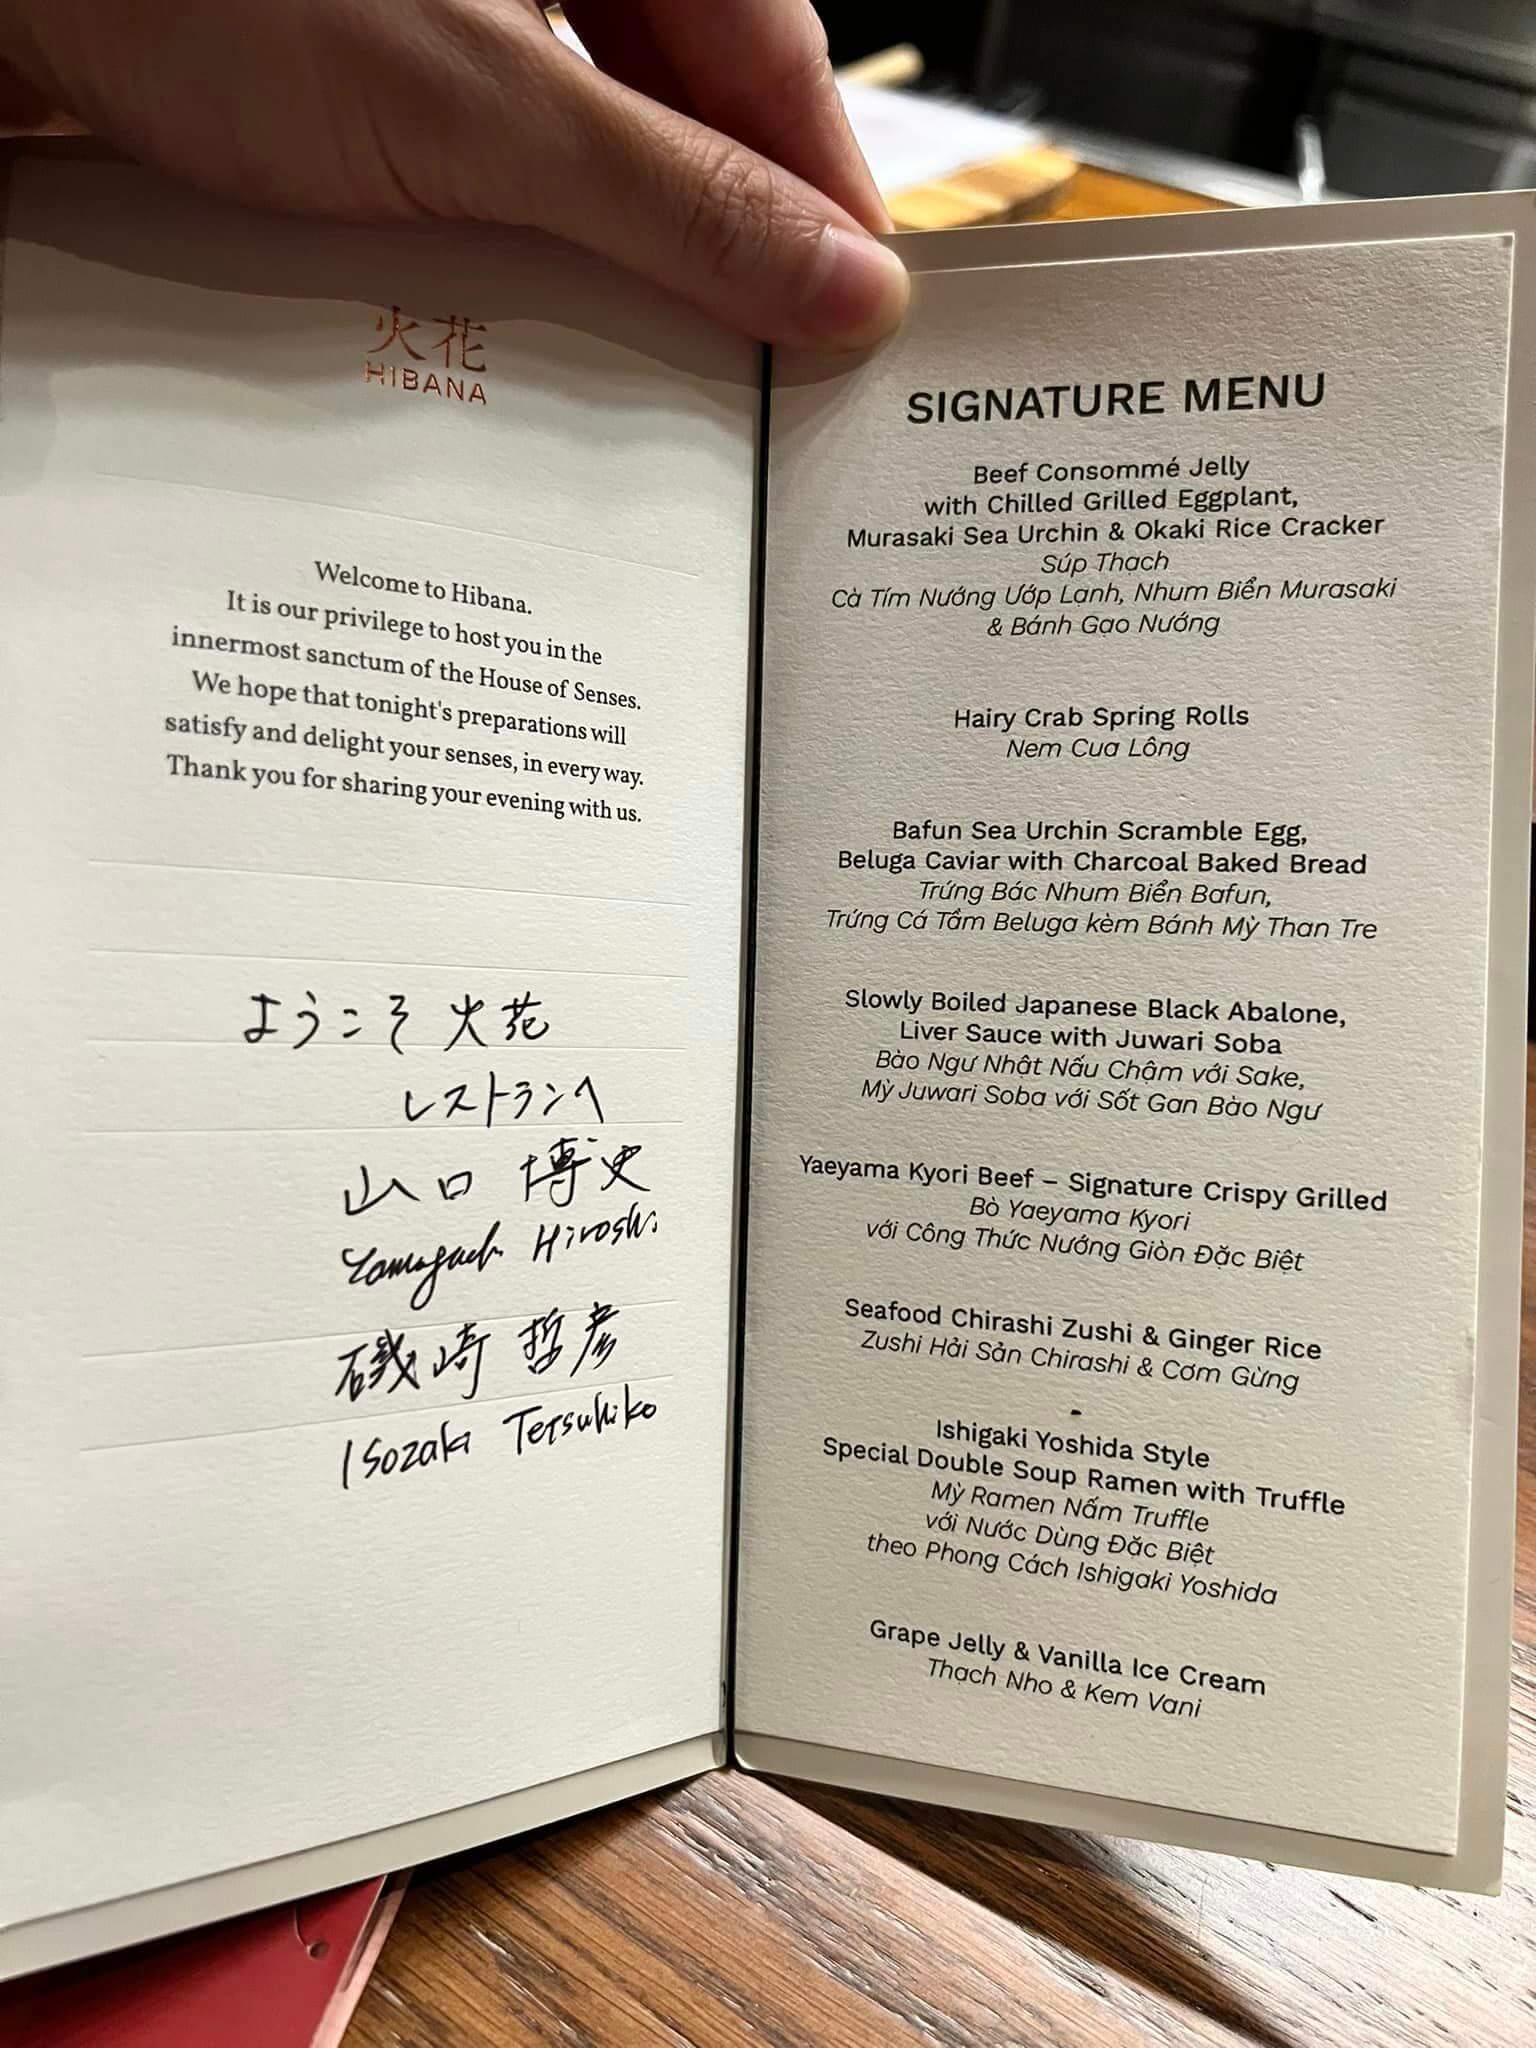 火花
HIBANA
Welcome to Hibana.
It is our privilege to host you in the
innermost sanctum of the House of Senses.
We hope that tonight's preparations will
satisfy and delight your senses, in every way.
Thank you for sharing your evening with us.
ようこそ 火花
レストランへ
山口 博史
Yamaguchi Hiroshi
磯崎 哲彦
Isozaki Tetsuhiko
SIGNATURE MENU
Beef Consommé Jelly
with Chilled Grilled Eggplant,
Murasaki Sea Urchin & Okaki Rice Cracker
Súp Thạch
Cà Tím Nướng Ướp Lạnh, Nhum Biển Murasaki
& Bánh Gạo Nướng
Hairy Crab Spring Rolls
Nem Cua Lông
Bafun Sea Urchin Scramble Egg,
Beluga Caviar with Charcoal Baked Bread
Trứng Bác Nhum Biển Bafun,
Trứng Cá Tầm Beluga kèm Bánh Mỳ Than Tre
Slowly Boiled Japanese Black Abalone,
Liver Sauce with Juwari Soba
Bào Ngư Nhật Nấu Chậm với Sake,
Mỳ Juwari Soba với Sốt Gan Bào Ngư
Yaeyama Kyori Beef – Signature Crispy Grilled
Bò Yaeyama Kyori
với Công Thức Nướng Giòn Đặc Biệt
Seafood Chirashi Zushi & Ginger Rice
Zushi Hải Sản Chirashi & Cơm Gừng
Ishigaki Yoshida Style
Special Double Soup Ramen with Truffle
Mỳ Ramen Nấm Truffle
với Nước Dùng Đặc Biệt
theo Phong Cách Ishigaki Yoshida
Grape Jelly & Vanilla Ice Cream
Thạch Nho & Kem Vani